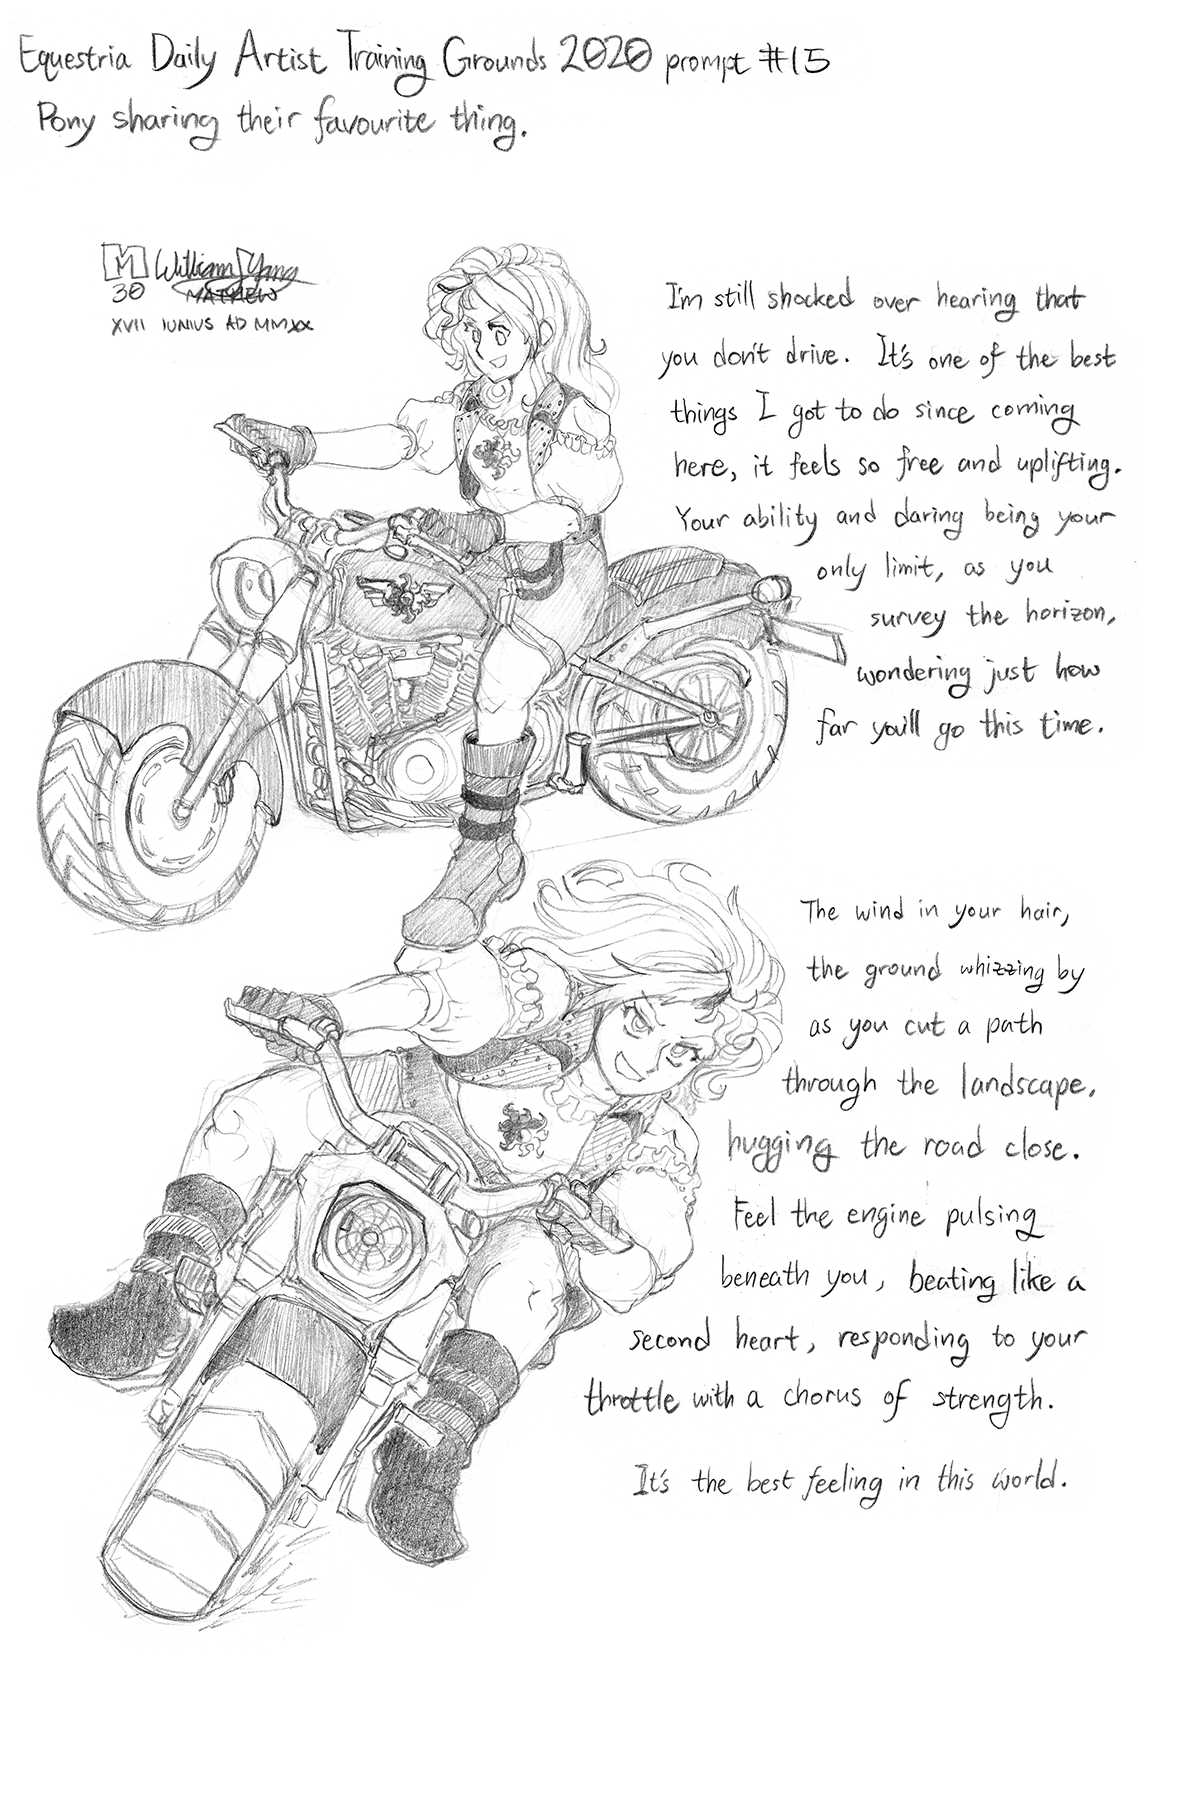 Equestria Daily Artist Training Grounds 2020 prompt #15
Pony sharing their favourite thing.
M William Yang
30 MATTHEW
XVII IUNIUS AD MMXX
I'm still shocked over hearing that
you don't drive. It's one of the best
things I got to do since coming
here, it feels so free and uplifting.
Your ability and daring being your
only limit, as you
survey the horizon,
wondering just how
far you'll go this time.
The wind in your hair,
the ground whizzing by
as you cut a path
through the landscape,
hugging the road close.
Feel the engine pulsing
beneath you, beating like a
second heart, responding to your
throttle with a chorus of strength.
It's the best feeling in this world.